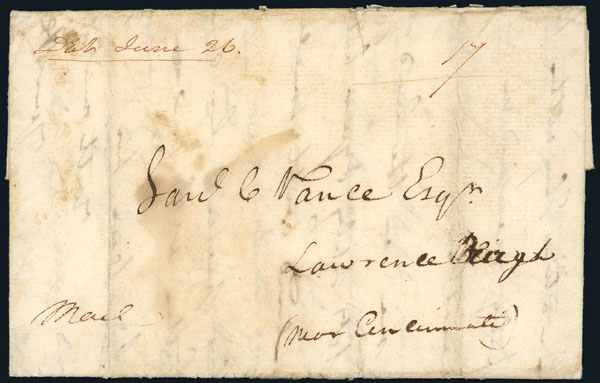 Deb June 26.
17
Saml C Vance Esqr.
Lawrence Burgh
Mail
(near Cincinnati)